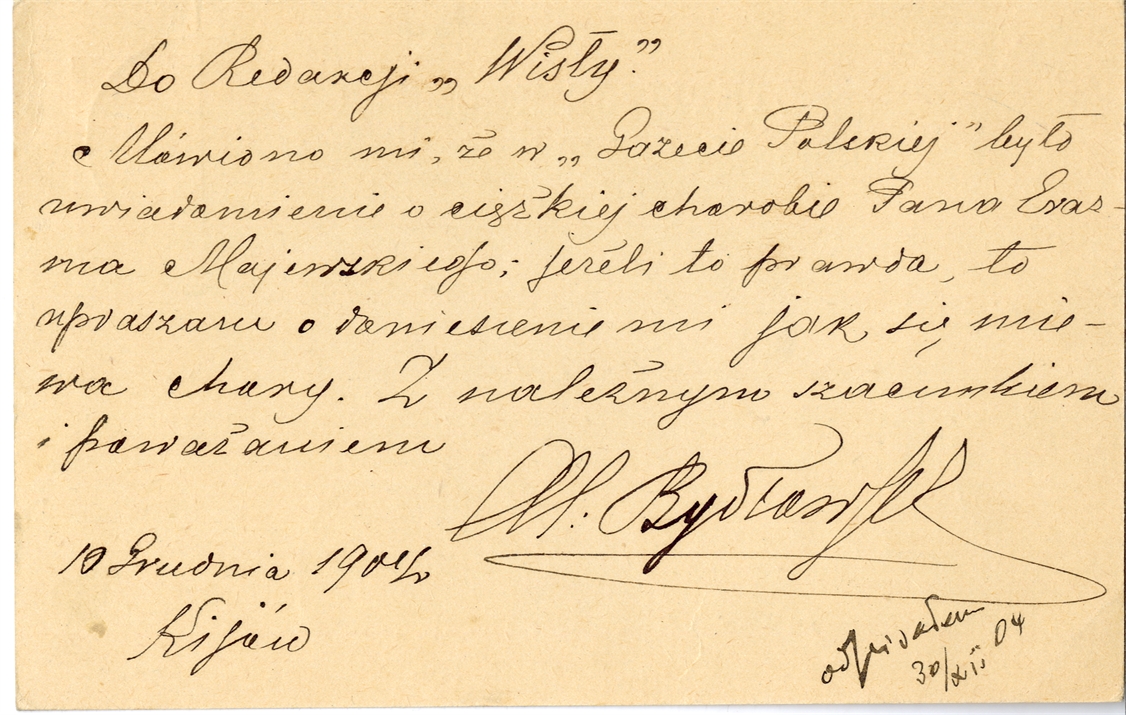 Do Redakcji „Wisły.”
Mówiono mi, że w „Gazecie Polskiej” było
uwiadomienie o ciężkiej chorobie Pana Eraz-
ma Majewskiego; jeżeli to prawda, to
upraszam o doniesienie mi jak się mie-
wa chory. Z należnym szacunkiem
i poważaniem
M. Bydłowski
10 Grudnia 1904/r
Kijów
odpisałem
30/XII 04